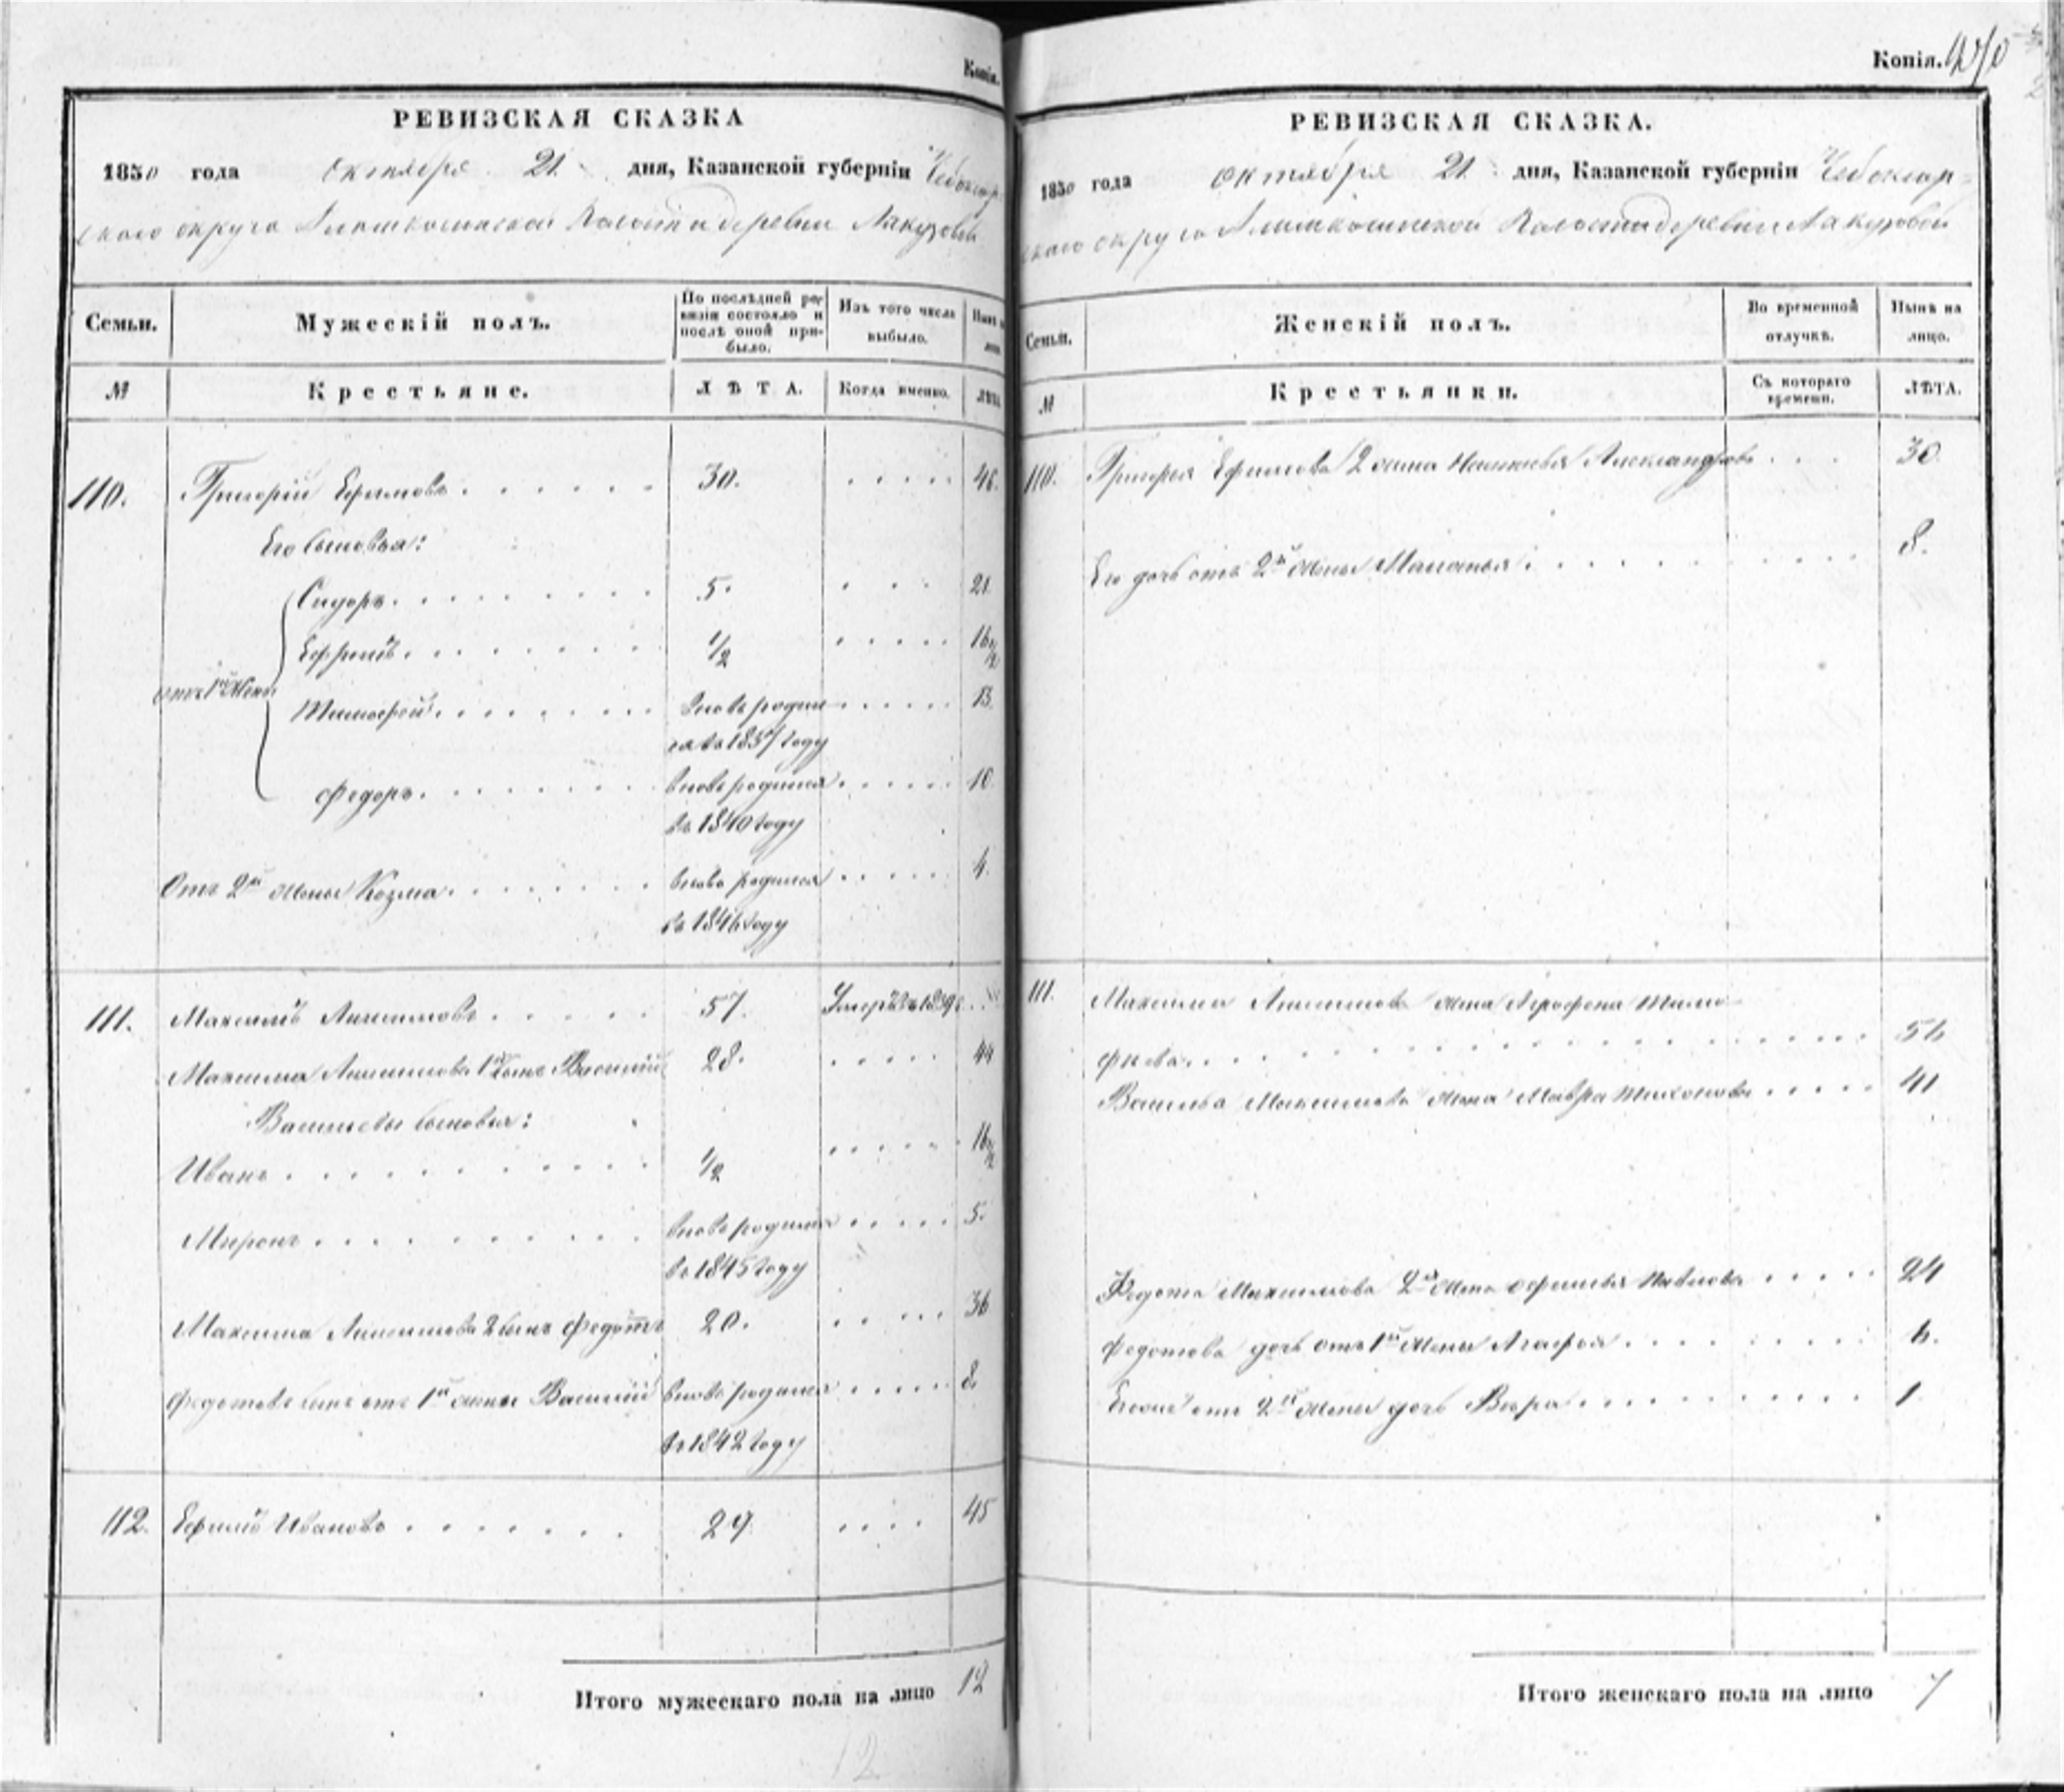 Копія.
РЕВИЗСКАЯ СКАЗКА
1850 года октября 21 дня, Казанской губерніи Чебоксар-
скаго округа Волости деревни Лакузовой
Семьи. Мужескій полъ. По послѣдней ревизіи состояло и послѣ оной прибыло. Изъ того числа выбыло. Нынѣ на лицо.
№ Крестьяне. ЛѢТА. Когда именно. ЛѢТА.
110. Григорій Ефимовъ 30. 46.
Его сыновья:
Сидоръ 5. 21.
Ефимъ 1/2 16 1/2
отъ 1й жены
Тимофей вновь родил- 13.
ся въ 1837 году
Федоръ вновь родился 10.
въ 1840 году
Отъ 2й жены Козма вновь родился 4.
въ 1846 году
111. Максимъ Анисимовъ 57. Умеръ въ 1839
Максима Анисимова 1й сынъ Василій 28. 44
Васильевы сыновья:
Иванъ 1/2 16 1/2
Миронъ вновь родился 5.
въ 1845 году
Максима Анисимова 2 сынъ Федотъ 20. 36
Федотовъ сынъ отъ 1й жены Василій вновь родился 8.
въ 1842 году
112. Ефимъ Ивановъ 29 45
Итого мужескаго пола на лицо 12
12
Копія. 270
РЕВИЗСКАЯ СКАЗКА.
1850 года октября 21 дня, Казанской губерніи Чебоксар-
скаго округа Волости деревни Лакузовой
Семьи. Женскій полъ. Во временной отлучкѣ. Нынѣ на лицо.
№ Крестьянки. Съ котораго времени. ЛѢТА.
110. Григорья Ефимова 2 жена Настасья Александрова 30.
Его дочь отъ 2й жены Маланья 8.
111. Максима Анисимова жена Аграфена Тимо-
фѣева 56
Василья Максимова жена Мавра Тихонова 41
Федота Максимова 2я жена Офимья Павлова 24
Федотова дочь отъ 1й жены Агафья 6.
Егоже отъ 2й жены дочь Вѣра 1.
Итого женскаго пола на лицо 7